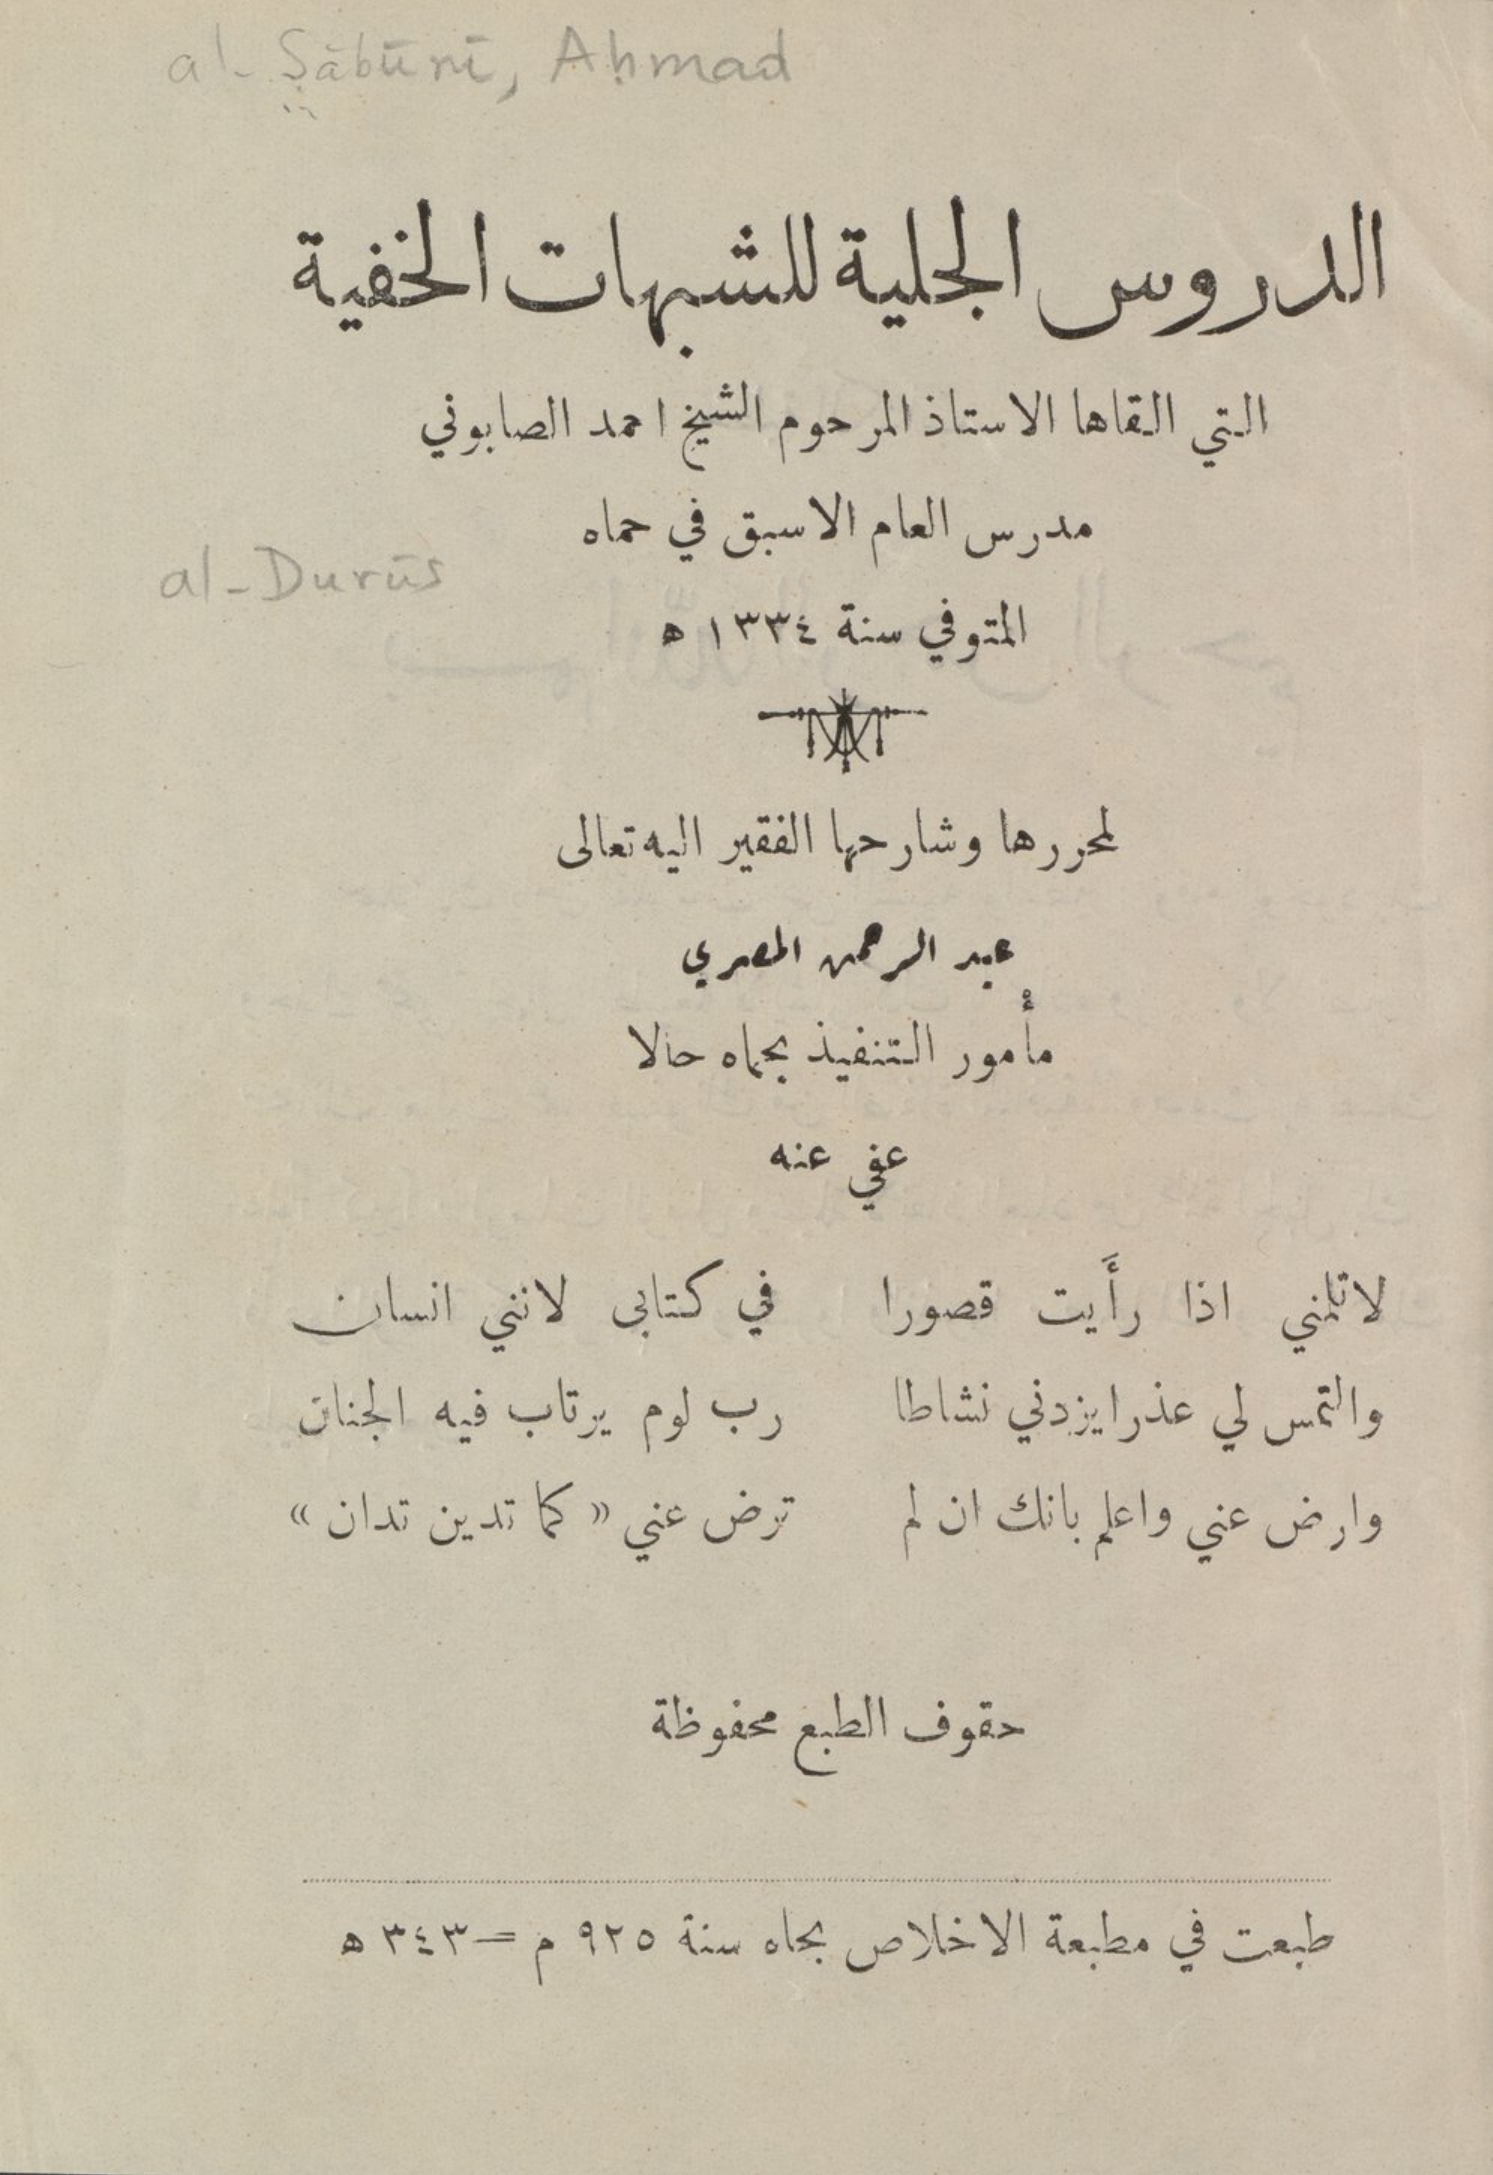 al-Ṣābūnī, Aḥmad
الدروس الجلية للشبهات الخفية
التي القاها الاستاذ المرحوم الشيخ احمد الصابوني
مدرس العام الاسبق في حماه
al-Durūs
المتوفي سنة ١٣٣٤ ه
لمحررها وشارحها الفقير اليه تعالى
عبد الرحمن المصري
مأمور التنفيذ بحماه حالا
عفي عنه
لاتلمني اذا رأَيت قصورا في كتابي لانني انسان
والتمس لي عذرا يزدني نشاطا رب لوم يرتاب فيه الجنان
وارض عني واعلم بانك ان لم ترض عني « كما تدين تدان »
حقوف الطبع محفوظة
طبعت في مطبعة الاخلاص بحماه سنة ٩٢٥ م = ٣٤٣ ه